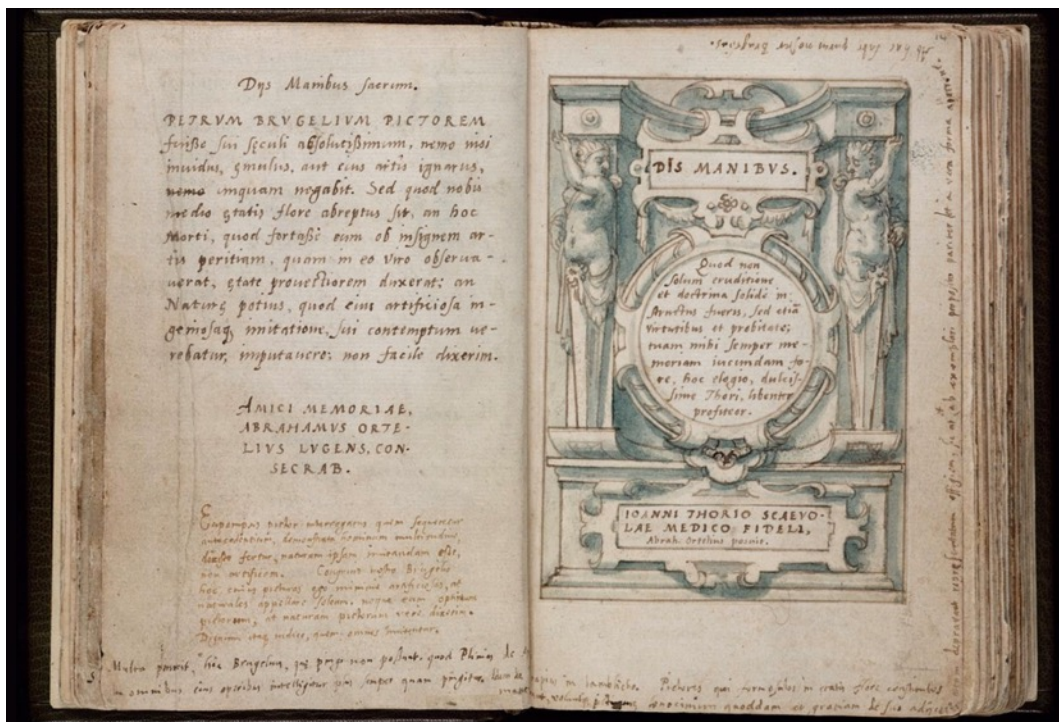 Dijs Manibus sacrum.
PETRVM BRVGELIVM PICTOREM
fuisse sui sęculi absolutissimum, nemo nisi
inuidus, ęmulus, aut eius artis ignarus,
nemo inquam negabit. Sed quod nobis
medio ętatis flore abreptus sit, an hoc
Morti, quod fortasse eum ob insignem ar-
tis peritiam, quam in eo viro observa-
uerat, ętate prouectiorem duxerat; an
Naturę potius, quod eius artificiosa in-
geniosaq₃ imitatione, sui contemptum ve-
rebatur, imputauero; non facile dixerim.
AMICI MEMORIAE,
ABRAHAMVS ORTE-
LIVS LVGENS, CON-
SECRAB.
Eupompus pictor interrogatus quem sequeretur
antecedentium, demonstrata hominum multitudine,
dixisse fertur, naturam ipsam imitandam esse,
non artificem. Congruit nostro Brugelio
hoc, cuius picturas ego minime artificiosas, at
naturales appellare soleam. neque eum optimum
pictorum, at naturam pictorum vero dixerim.
Dignum itaq₃ iudico, quem omnes imitentur.
Multa pinxit, hic Brugelius, quę pingi non possunt. quod Plinius de
in omnibus eius operibus intelligitur plus semper quam pingitur.
DIS MANIBVS.
Quod non
solum eruditione,
et doctrina solide in-
structus fueris, sed etiã
virtutibus et probitate;
tuam mihi semper me-
moriam iucundam fo-
re, hoc elogio, dulcis-
sime Thori, libenter
profiteor.
IOANNI THORIO SCAEVO-
LAE MEDICO FIDELI,
Abrah. Ortelius posuit.
Pictores qui
et gratiam de suo